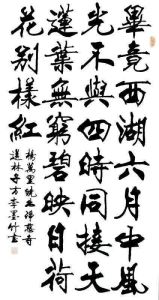 畢竟西湖六月中風
光不與四時同接天
蓮葉無窮碧映日荷
花别樣紅
楊萬里曉出淨慈寺
送林子方李墨竹書